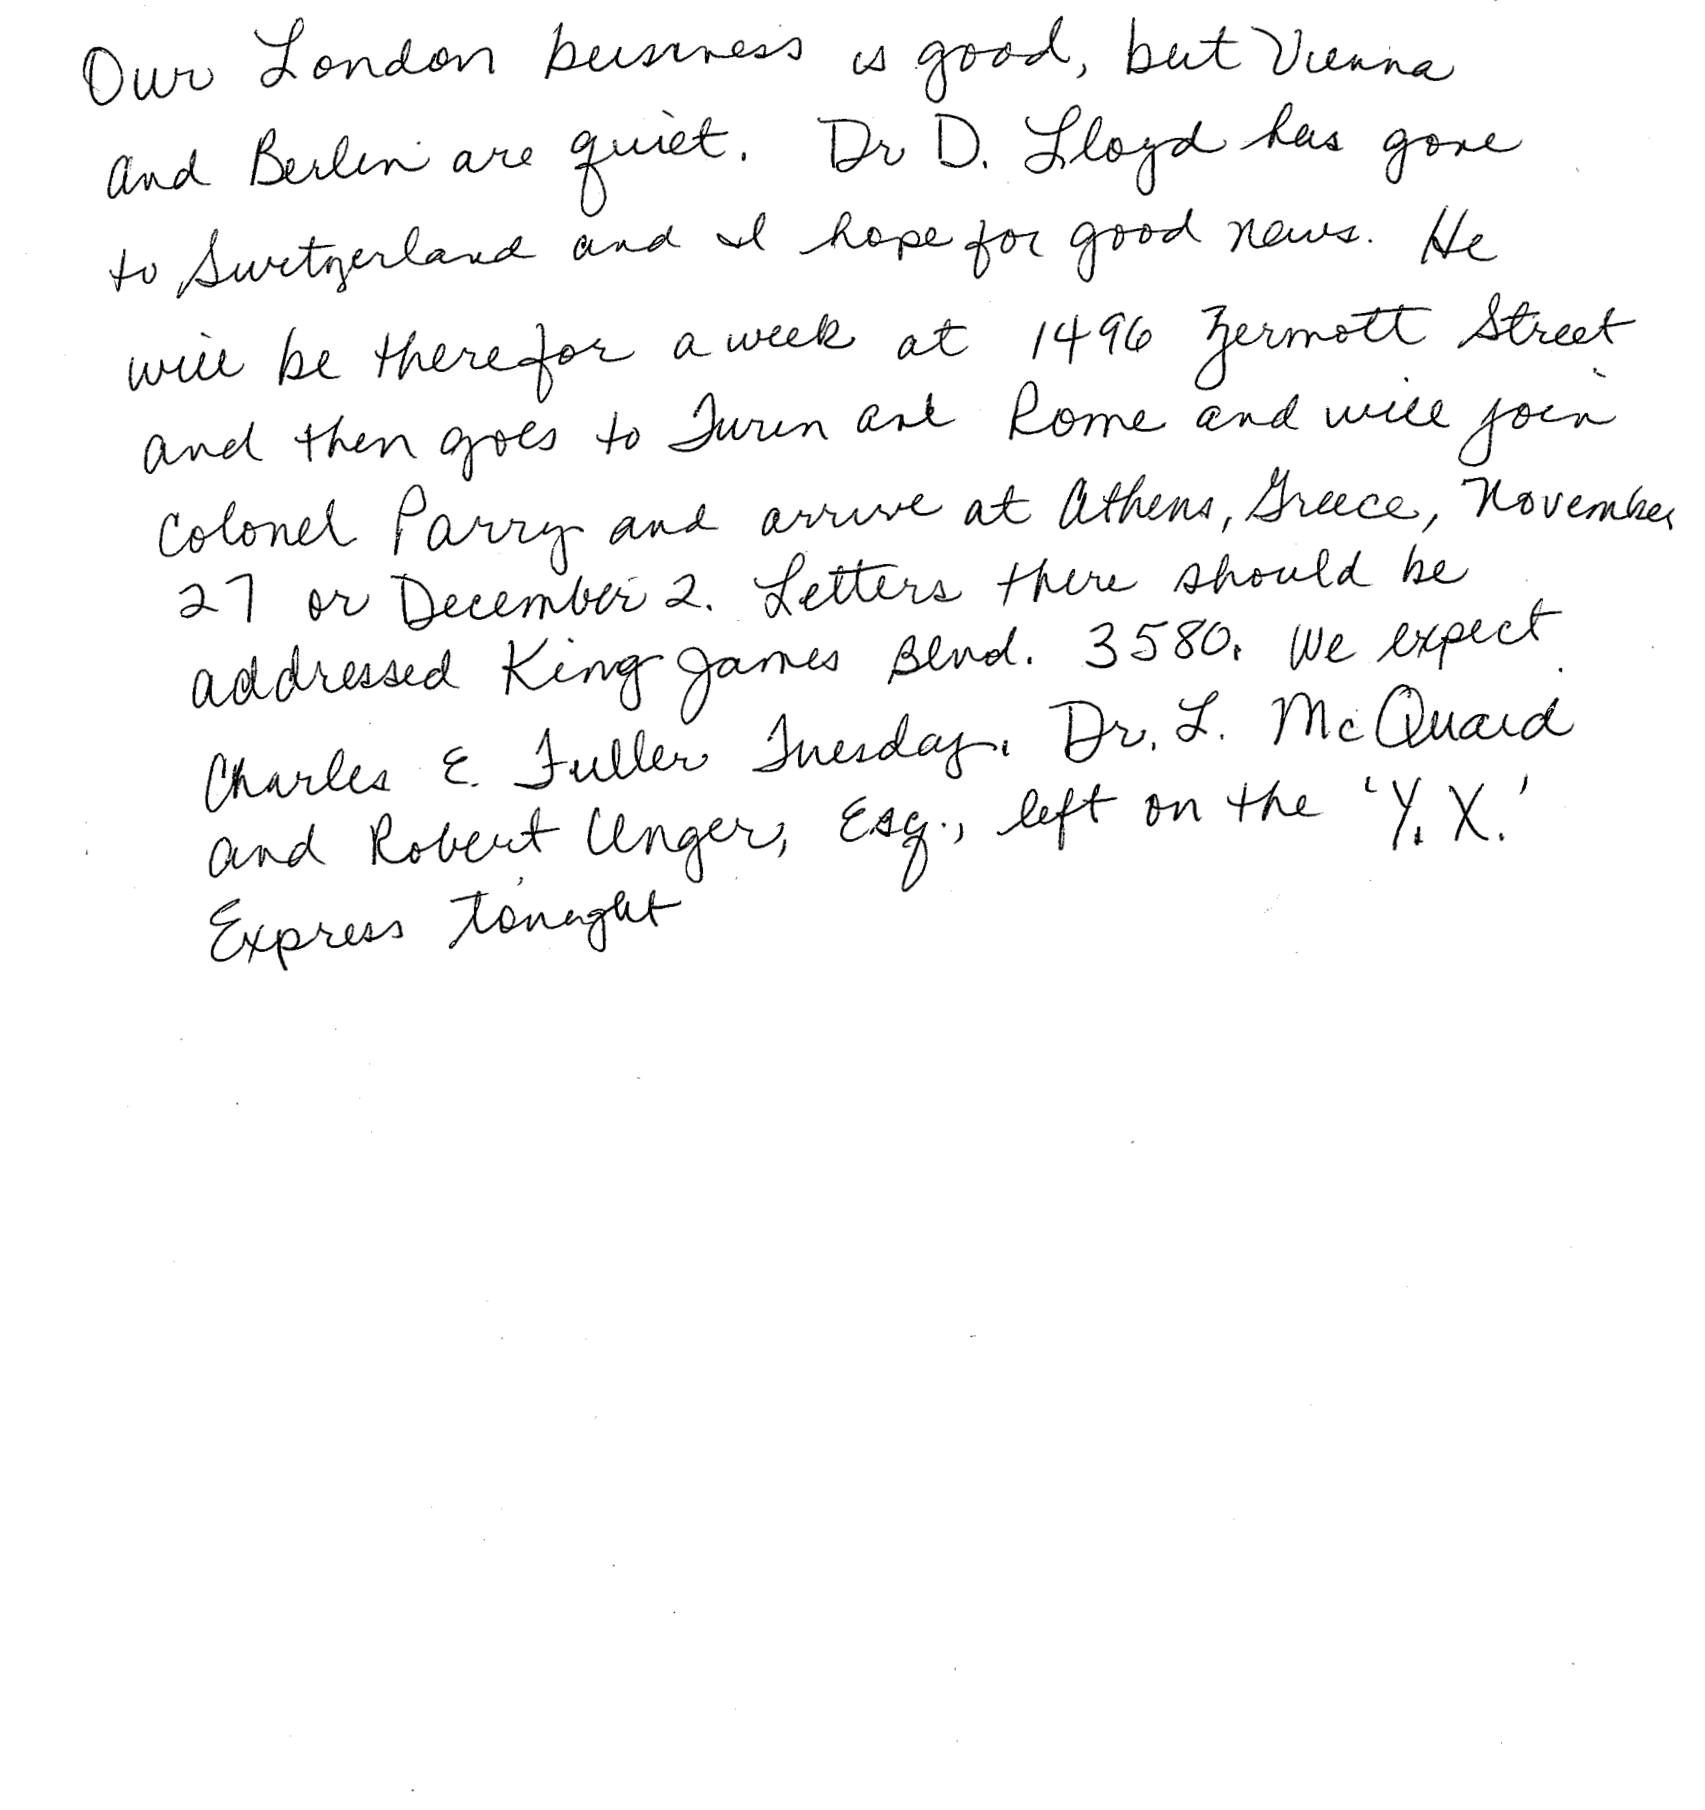 Our London business is good, but Vienna
and Berlin are quiet. Dr D. Lloyd has gone
to Switzerland and I hope for good news. He
will be there for a week at 1496 Zermott Street
and then goes to Turin and Rome and will join
Colonel Parry and arrive at Athens, Greece, November
27 or December 2. Letters there should be
addressed King James Blvd. 3580. We expect
Charles E. Fuller Tuesday. Dr. L. McQuaid
and Robert Unger, Esq., left on the 'Y. X.'
Express tonight